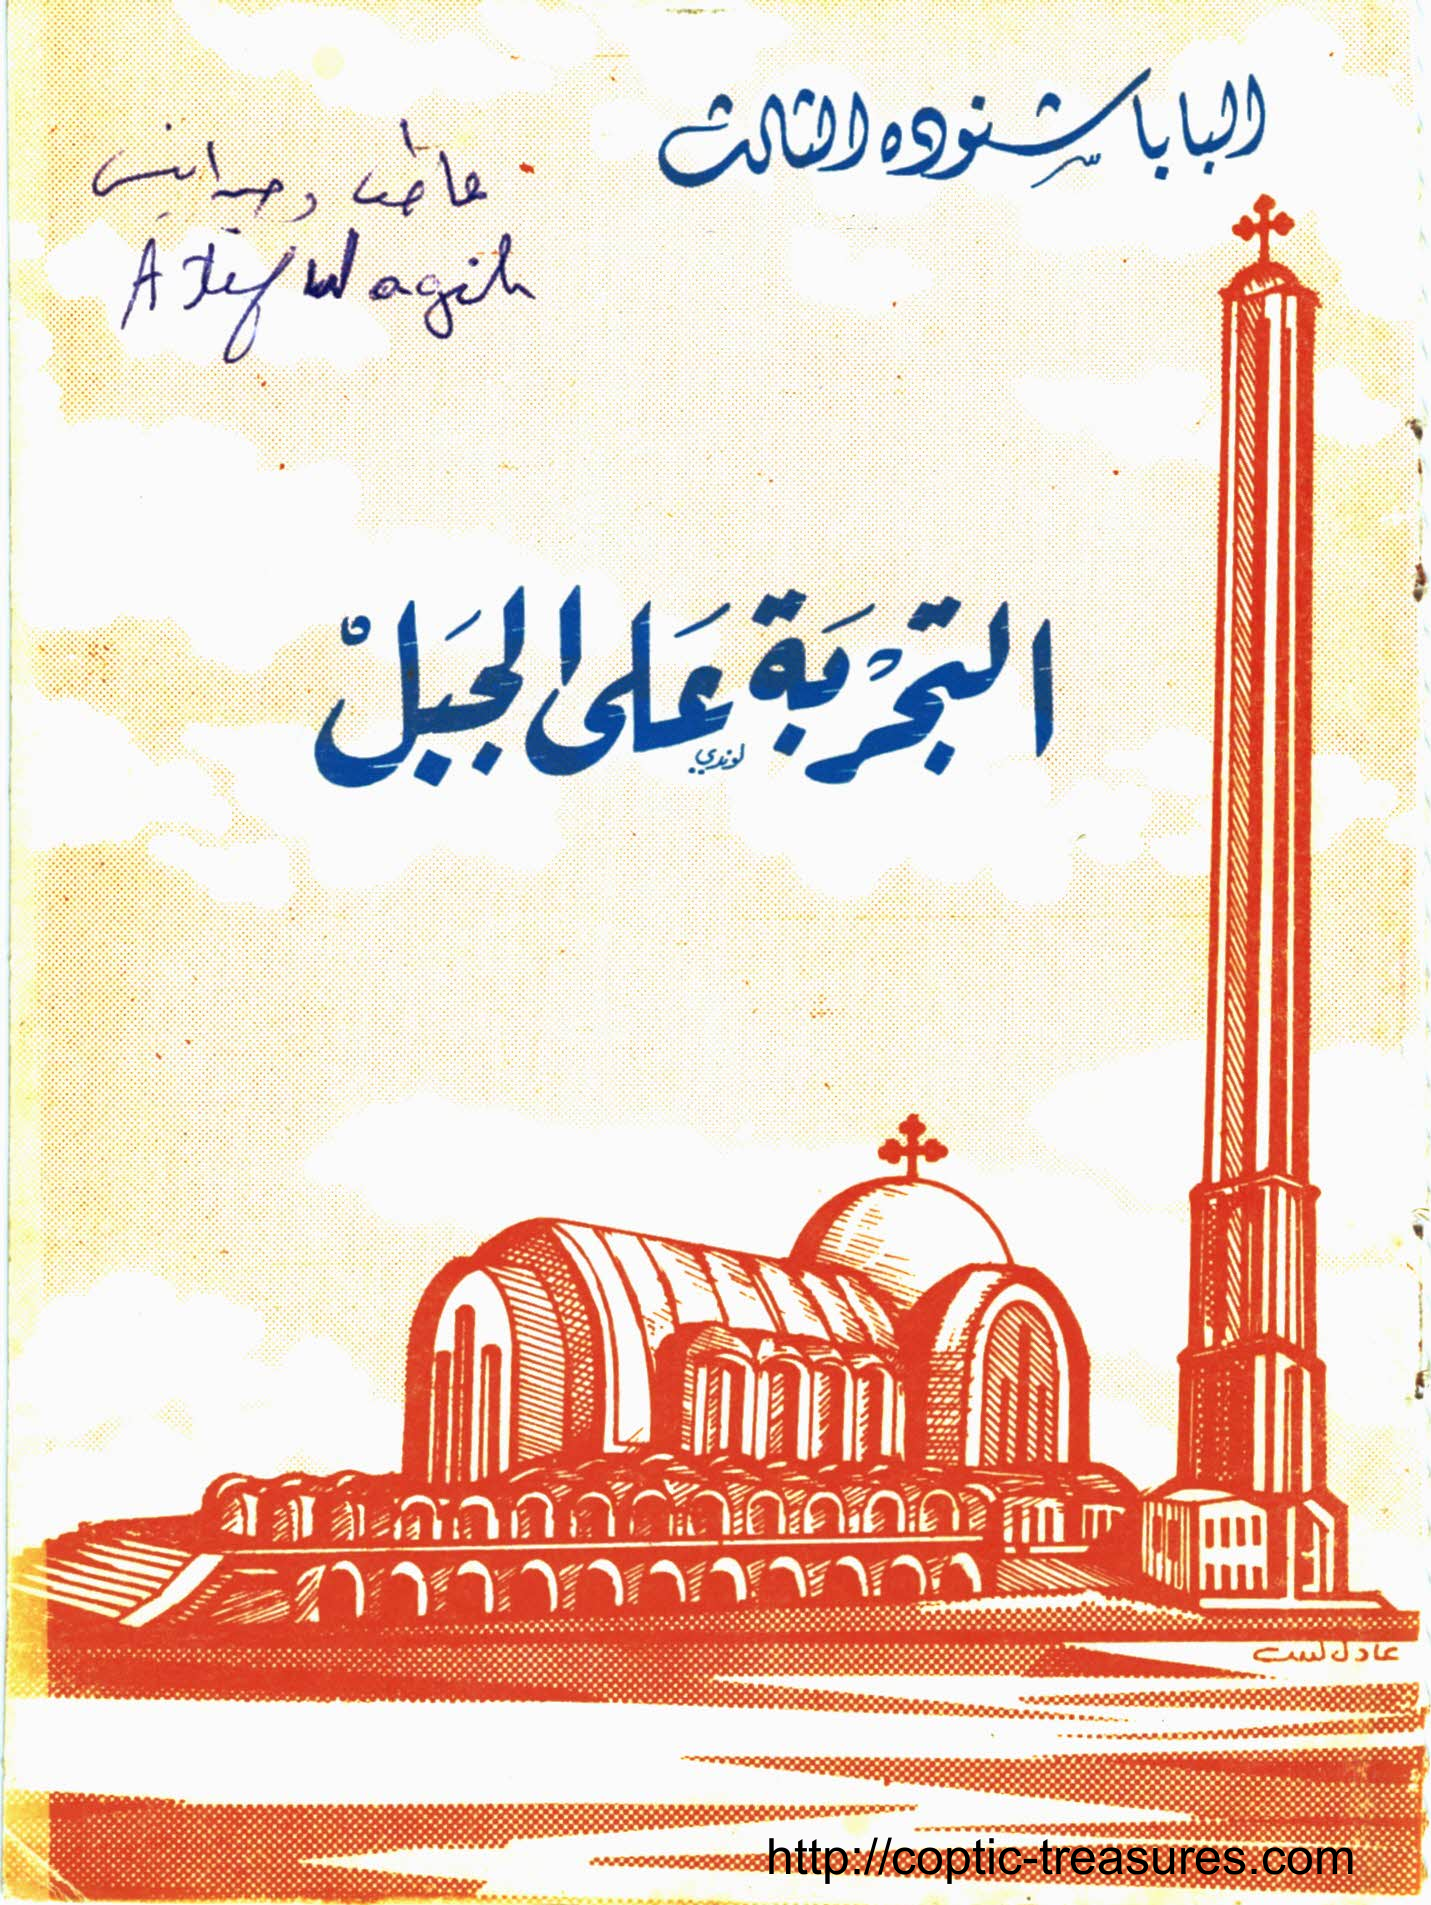 البابا شنوده الثالث
عاطف وجيه
Atef Wagih
التجربة على الجبل
لوندي
عادل لسب
http://coptic-treasures.com